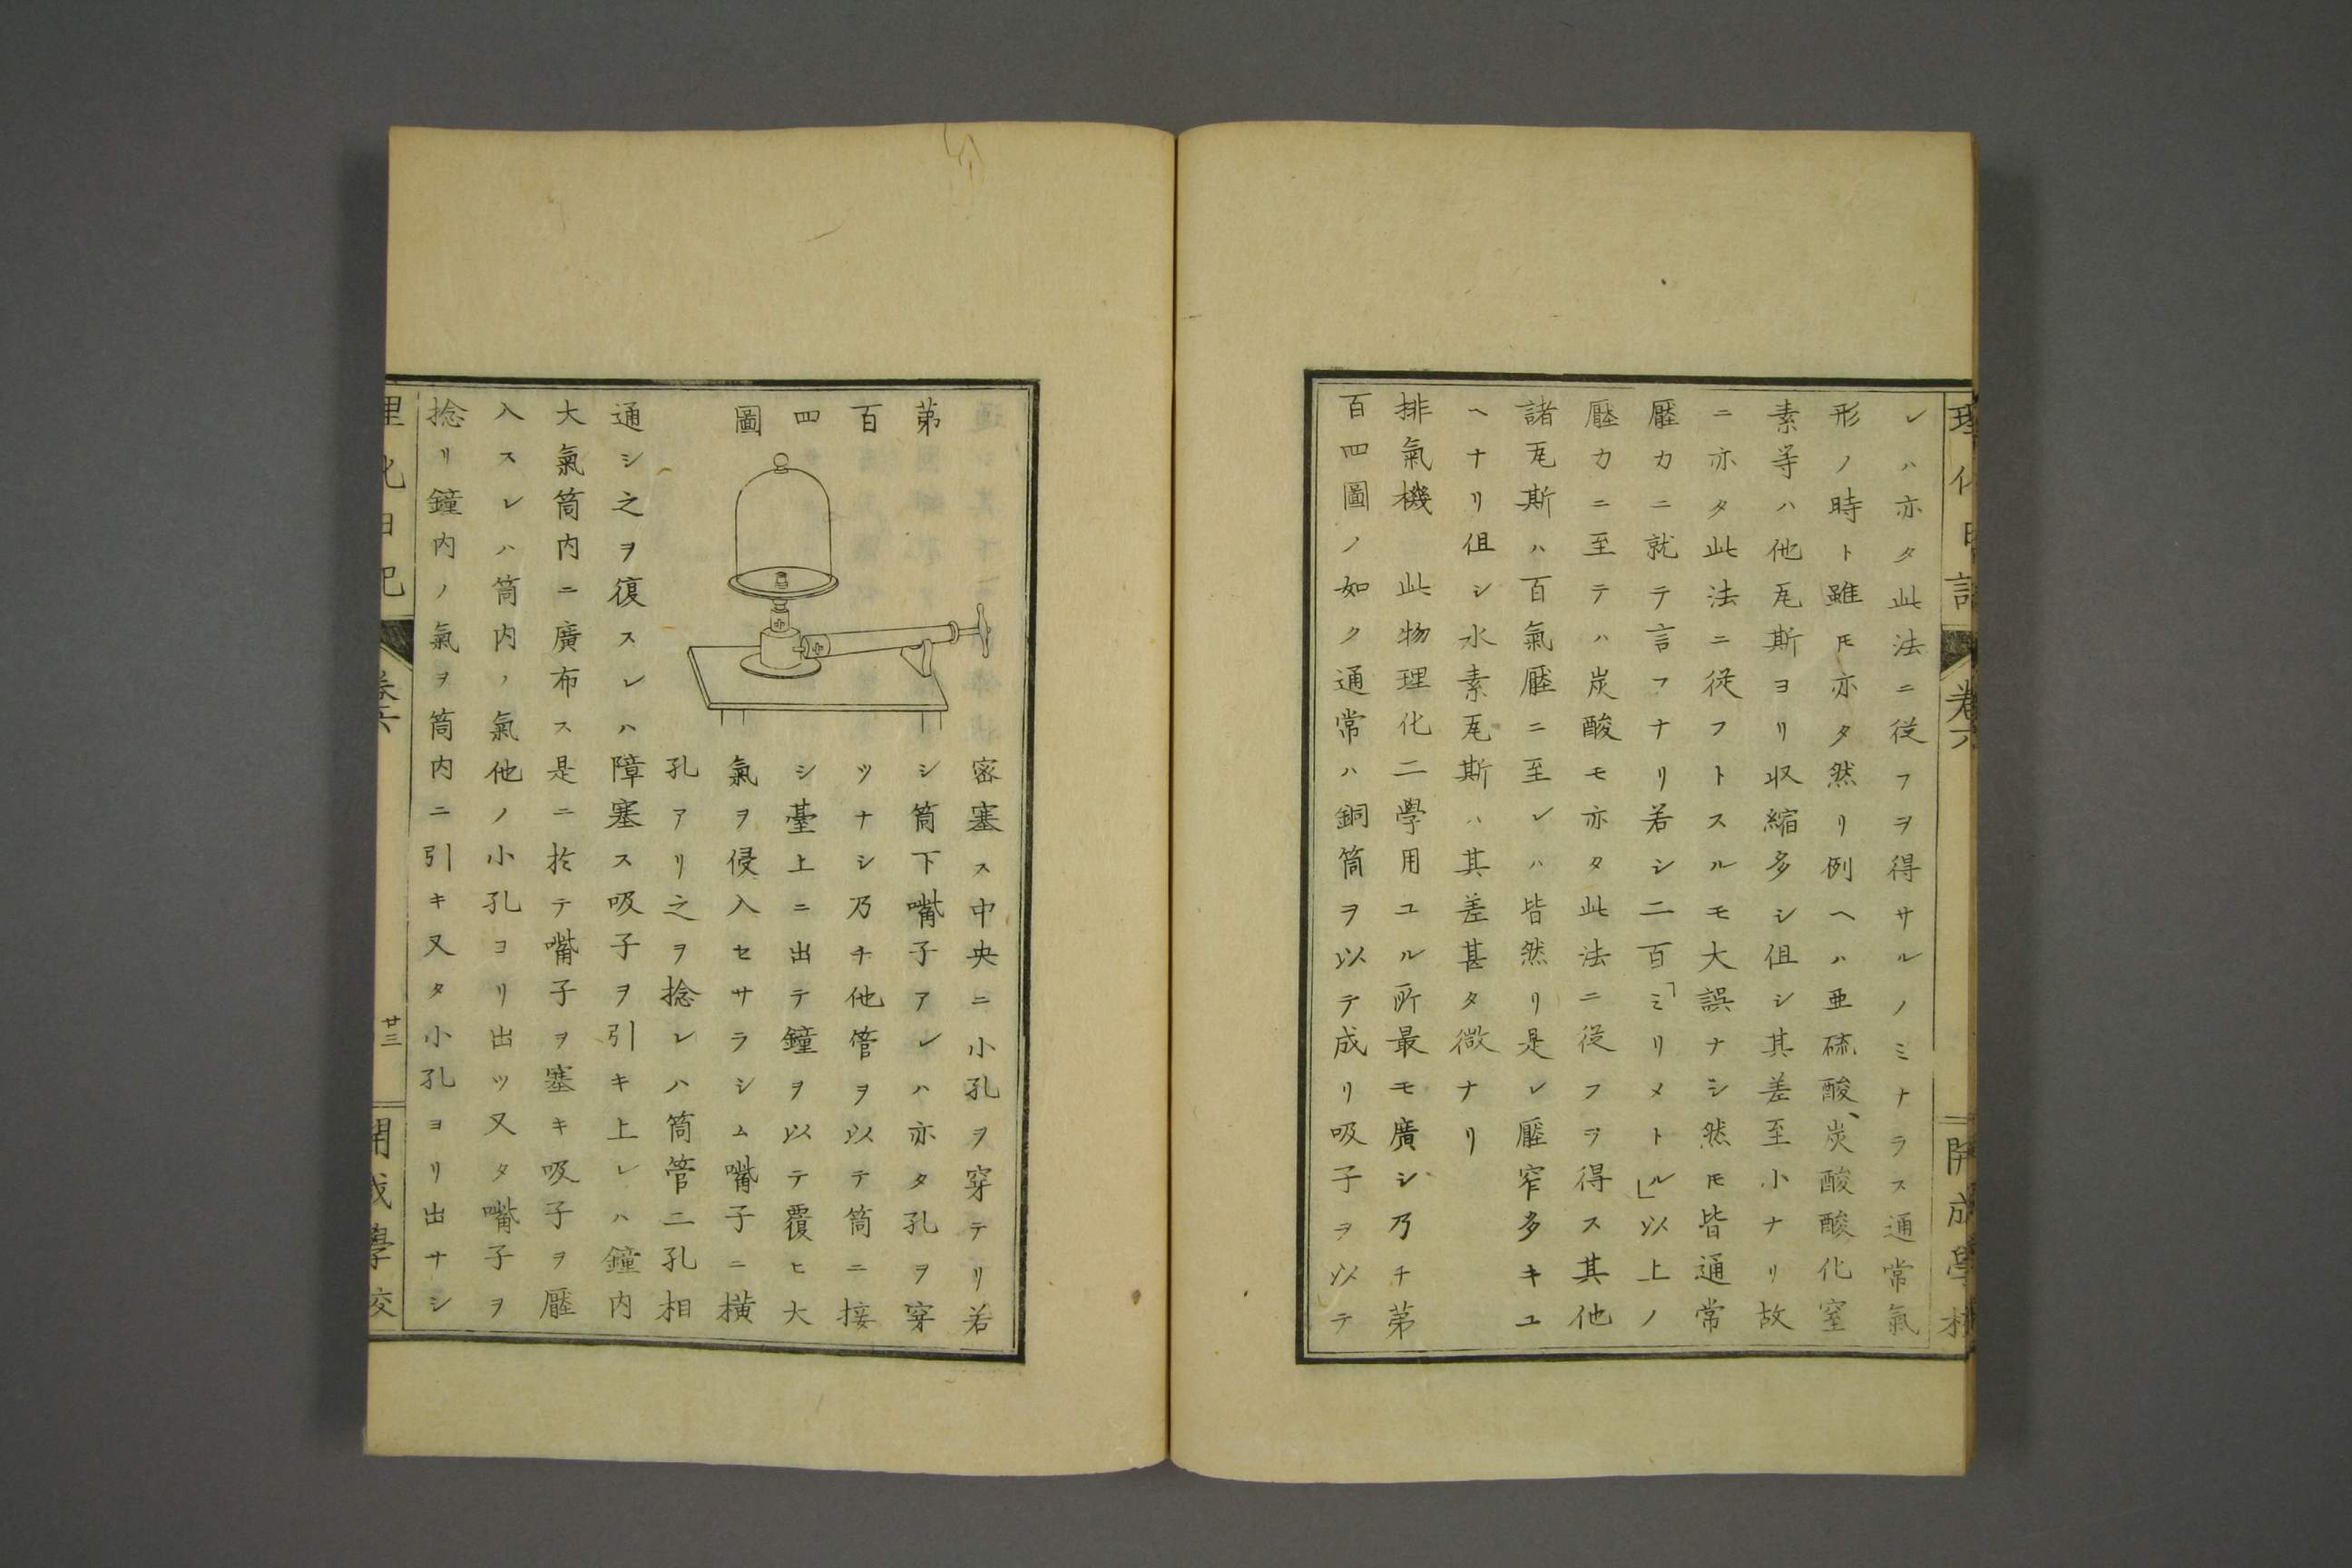 レハ亦タ此法ニ從フヲ得サルノミナラス通常氣
形ノ時ト雖𪜈亦タ然リ例ヘハ亜硫酸、炭酸酸化窒
素等ハ他瓦斯ヨリ収縮多シ伹シ其差至小ナリ故
ニ亦タ此法ニ從フトスルモ大誤ナシ然𪜈皆通常
壓力ニ就テ言フナリ若シ二百「ミリメトル」以上ノ
壓力ニ至テハ炭酸モ亦タ此法ニ從フヲ得ス其他
諸瓦斯ハ百氣壓ニ至レハ皆然リ是レ壓窄多キユ
ヘナリ伹シ水素瓦斯ハ其差甚タ微ナリ
排氣機 此物理化二學用ユル所最モ廣シ乃チ第
百四圖ノ如ク通常ハ銅筒ヲ以テ成リ吸子ヲ以テ
密塞ス中央ニ小孔ヲ穿テリ若
シ筒下嘴子アレハ亦タ孔ヲ穿
ツナシ乃チ他管ヲ以テ筒ニ接
シ臺上ニ出テ鐘ヲ以テ覆ヒ大
氣ヲ侵入セサラシム嘴子ニ横
孔アリ之ヲ捻レハ筒管二孔相
第百四圖
通シ之ヲ復スレハ障塞ス吸子ヲ引キ上レハ鐘内
大氣筒内ニ廣布ス是ニ於テ嘴子ヲ塞キ吸子ヲ壓
入スレハ筒内ノ氣他ノ小孔ヨリ出ツ又タ嘴子ヲ
捻リ鐘内ノ氣ヲ筒内ニ引キ又タ小孔ヨリ出サシ
理化日記 卷六 廿三 開成學校